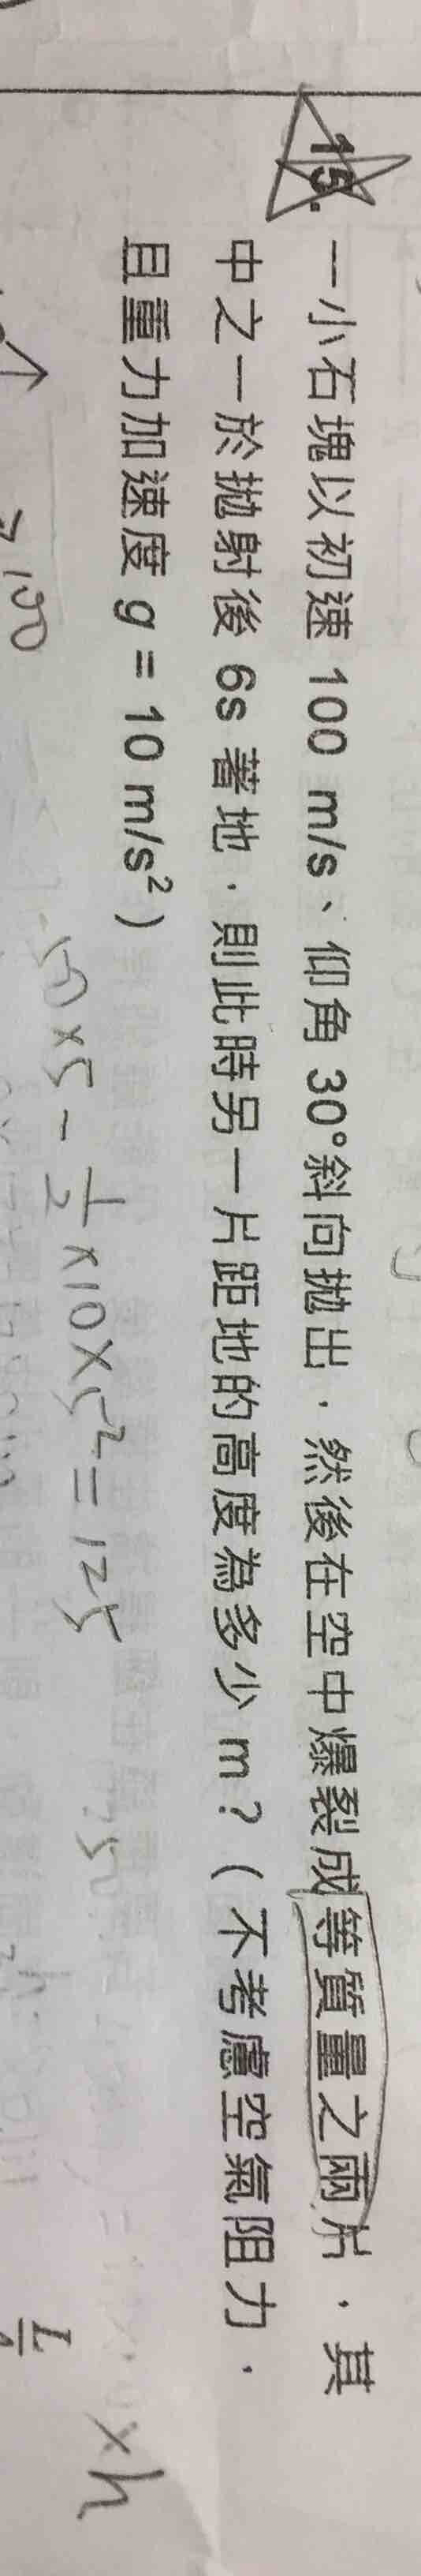 15. 一小石塊以初速 100 m/s、仰角 30°斜向拋出，然後在空中爆裂成等質量之兩片，其
中之一於拋射後 6s 著地，則此時另一片距地的高度為多少 m？（不考慮空氣阻力，
且重力加速度 g = 10 m/s²）
50×5 - 1/2 ×10×5² = 125
100
×h